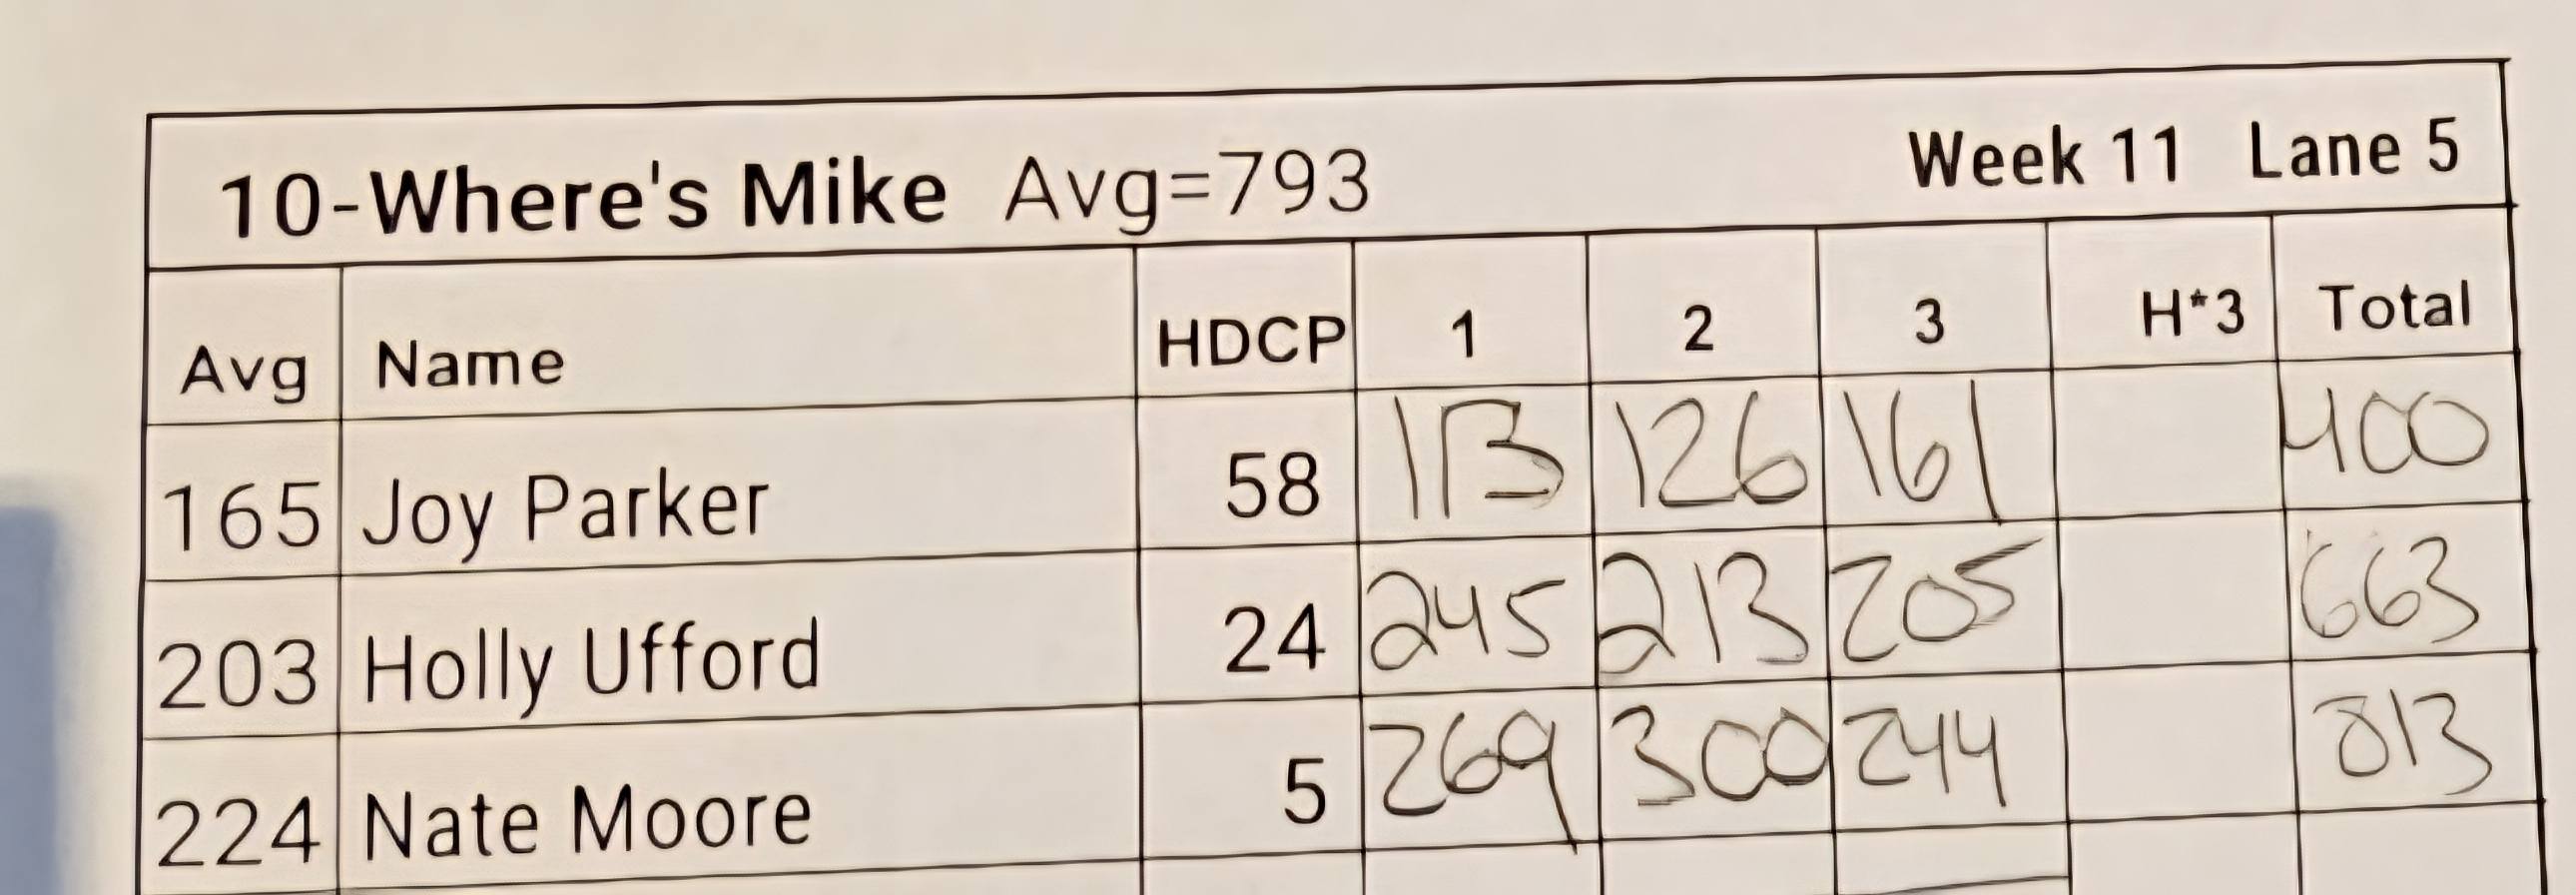 10-Where's Mike Avg=793 Week 11 Lane 5
Avg Name HDCP 1 2 3 H*3 Total
165 Joy Parker 58 113 126 161 400
203 Holly Ufford 24 245 213 205 663
224 Nate Moore 5 269 300 244 813